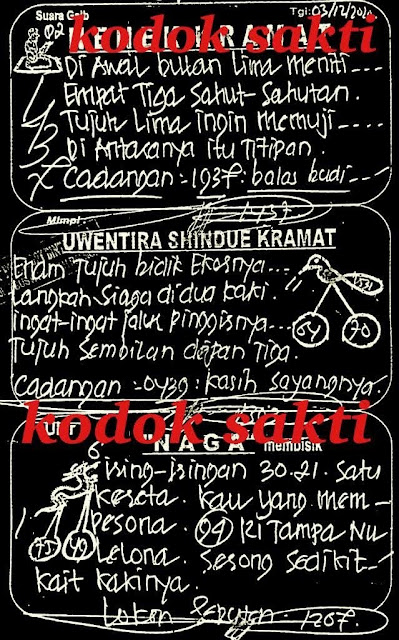 Suara Gaib
Tgl: 03/12/20
02
kodok sakti
KRAMAT
Di Awal bukan Lima meniti....
Empat Tiga Sahut-Sahutan.
Tujuh Lima ingin memuji----
Di Antaranya itu Titipan.
Cadangan = 1937: balas budi----
1437
Mimpi:
UWENTIRA SHINDUE KRAMAT
Enam Tujuh bidik Ekosnya...
Langkah Siaga di dua kaki.
ingat-ingat jalur pinggirnya---
Tujuh Sembilan dapan Tiga.
54
70
Cadangan = 0439: kasih sayangnya.
kodok sakti
NAGA
membisik
6
ising-isingan 30.21. satu
Kau yang mem-
pesona. 04 Ki Tampa Nu
Lelona. Sesong sedikit-
kait kakinya.
1207.